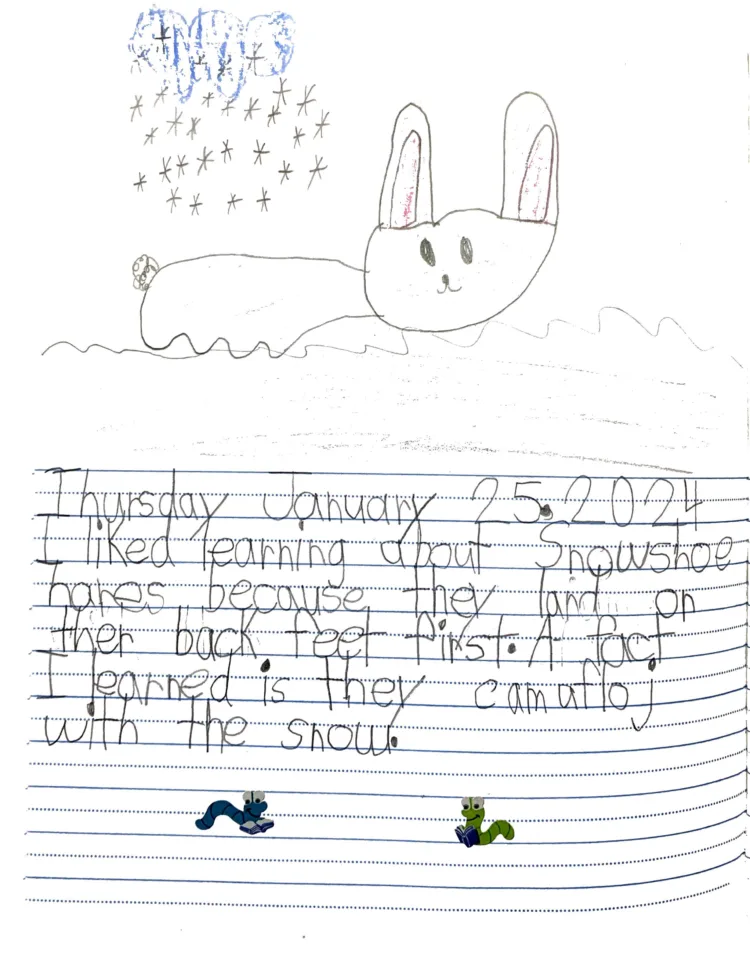 Thursday January 25.2024
I liked learning about Snowshoe
hares because they land on
ther back feet first. A fact
I learned is they camufloj
with the snow.